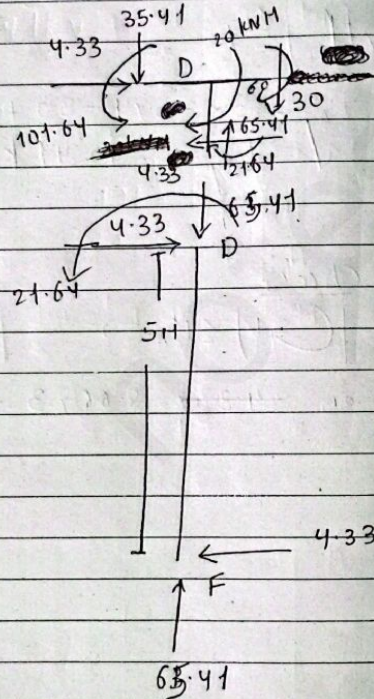 35.41
4.33
20 KNM
D
60
30
101.64
65.41
4.33
21.64
65.41
4.33
D
21.64
5M
4.33
F
65.41